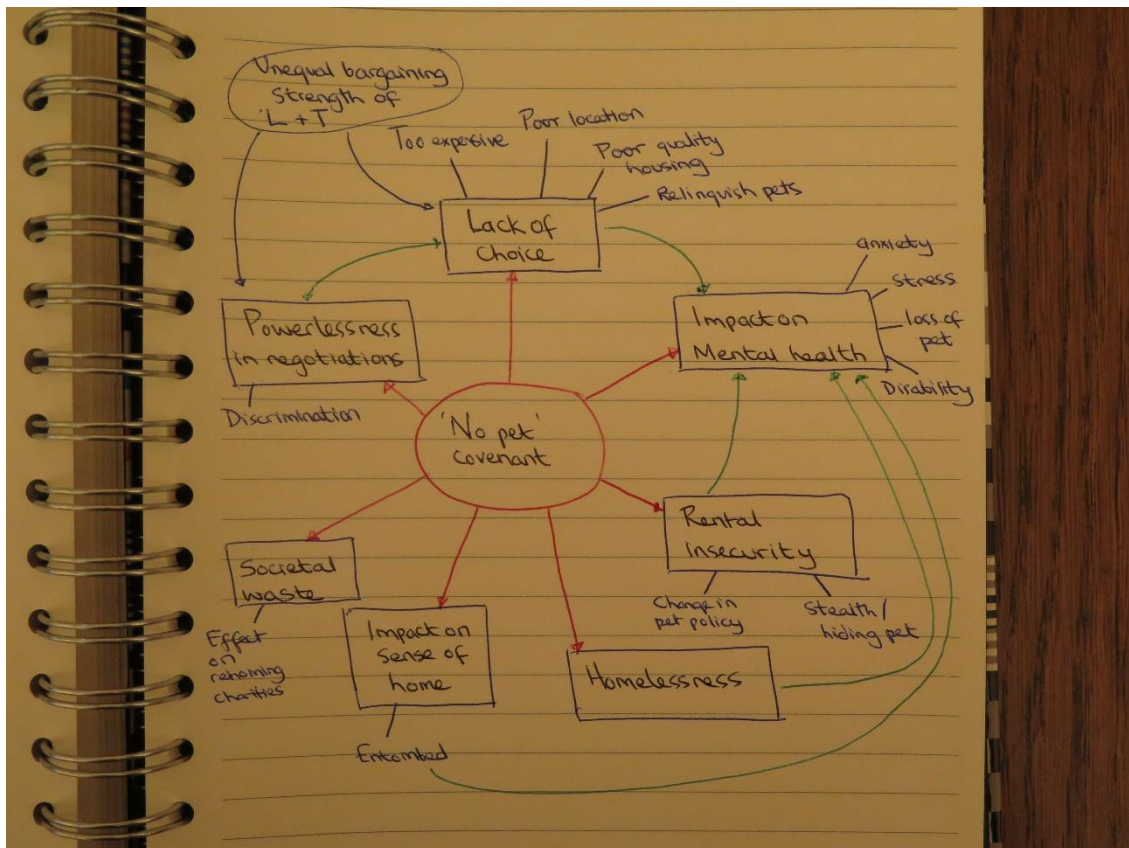 Unequal bargaining
Strength of
L + T
Too expensive
Poor location
Poor quality
housing
Relinquish pets
Lack of
Choice
anxiety
Stress
loss of
pet
Disability
Impact on
Mental health
Powerlessness
in negotiations
Discrimination
'No pet'
covenant
Rental
insecurity
Change in
pet policy
Stealth/
hiding pet
Societal
waste
Effect
on
rehoming
charities
Impact on
Sense of
home
Entombed
Homelessness